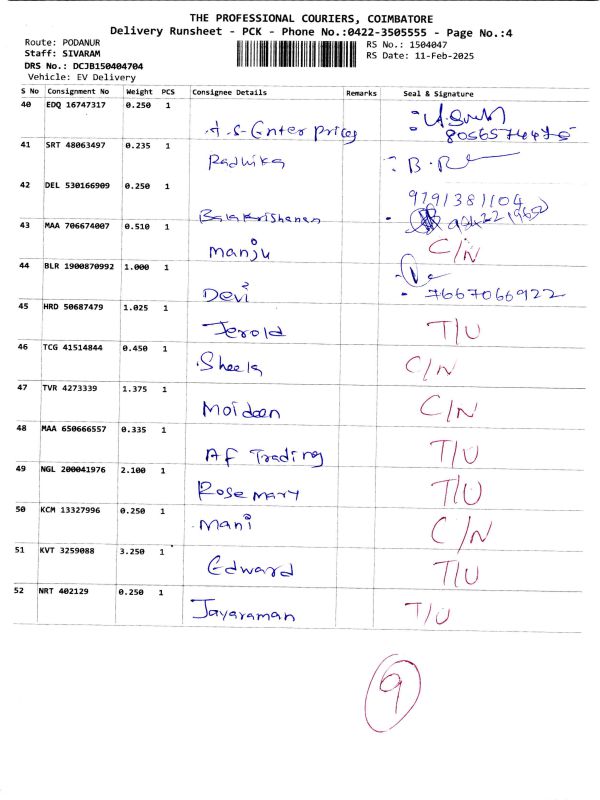 THE PROFESSIONAL COURIERS, COIMBATORE
Delivery Runsheet - PCK - Phone No.:0422-3505555 - Page No.:4
Route: PODANUR RS No.: 1504047
Staff: SIVARAM RS Date: 11-Feb-2025
DRS No.: DCJB150404704
Vehicle: EV Delivery
S No Consignment No Weight PCS Consignee Details Remarks Seal & Signature
40 EDQ 16747317 0.250 1
A.S-Enterprices 8056574475
41 SRT 48063497 0.235 1
Radhika B.R
42 DEL 530166909 0.250 1 9791381104
Balakrishanan
43 MAA 706674007 0.510 1
Manju C/N
44 BLR 1900870992 1.000 1
Devi 7667066922
45 HRD 50687479 1.025 1
Jerold T/U
46 TCG 41514844 0.450 1
Sheela C/N
47 TVR 4273339 1.375 1
Moideen C/N
48 MAA 650666557 0.335 1
AF Trading T/U
49 NGL 200041976 2.100 1
Rosemary T/U
50 KCM 13327996 0.250 1
Mani C/N
51 KVT 3259088 3.250 1
Edward T/U
52 NRT 402129 0.250 1
Jayaraman T/U
9